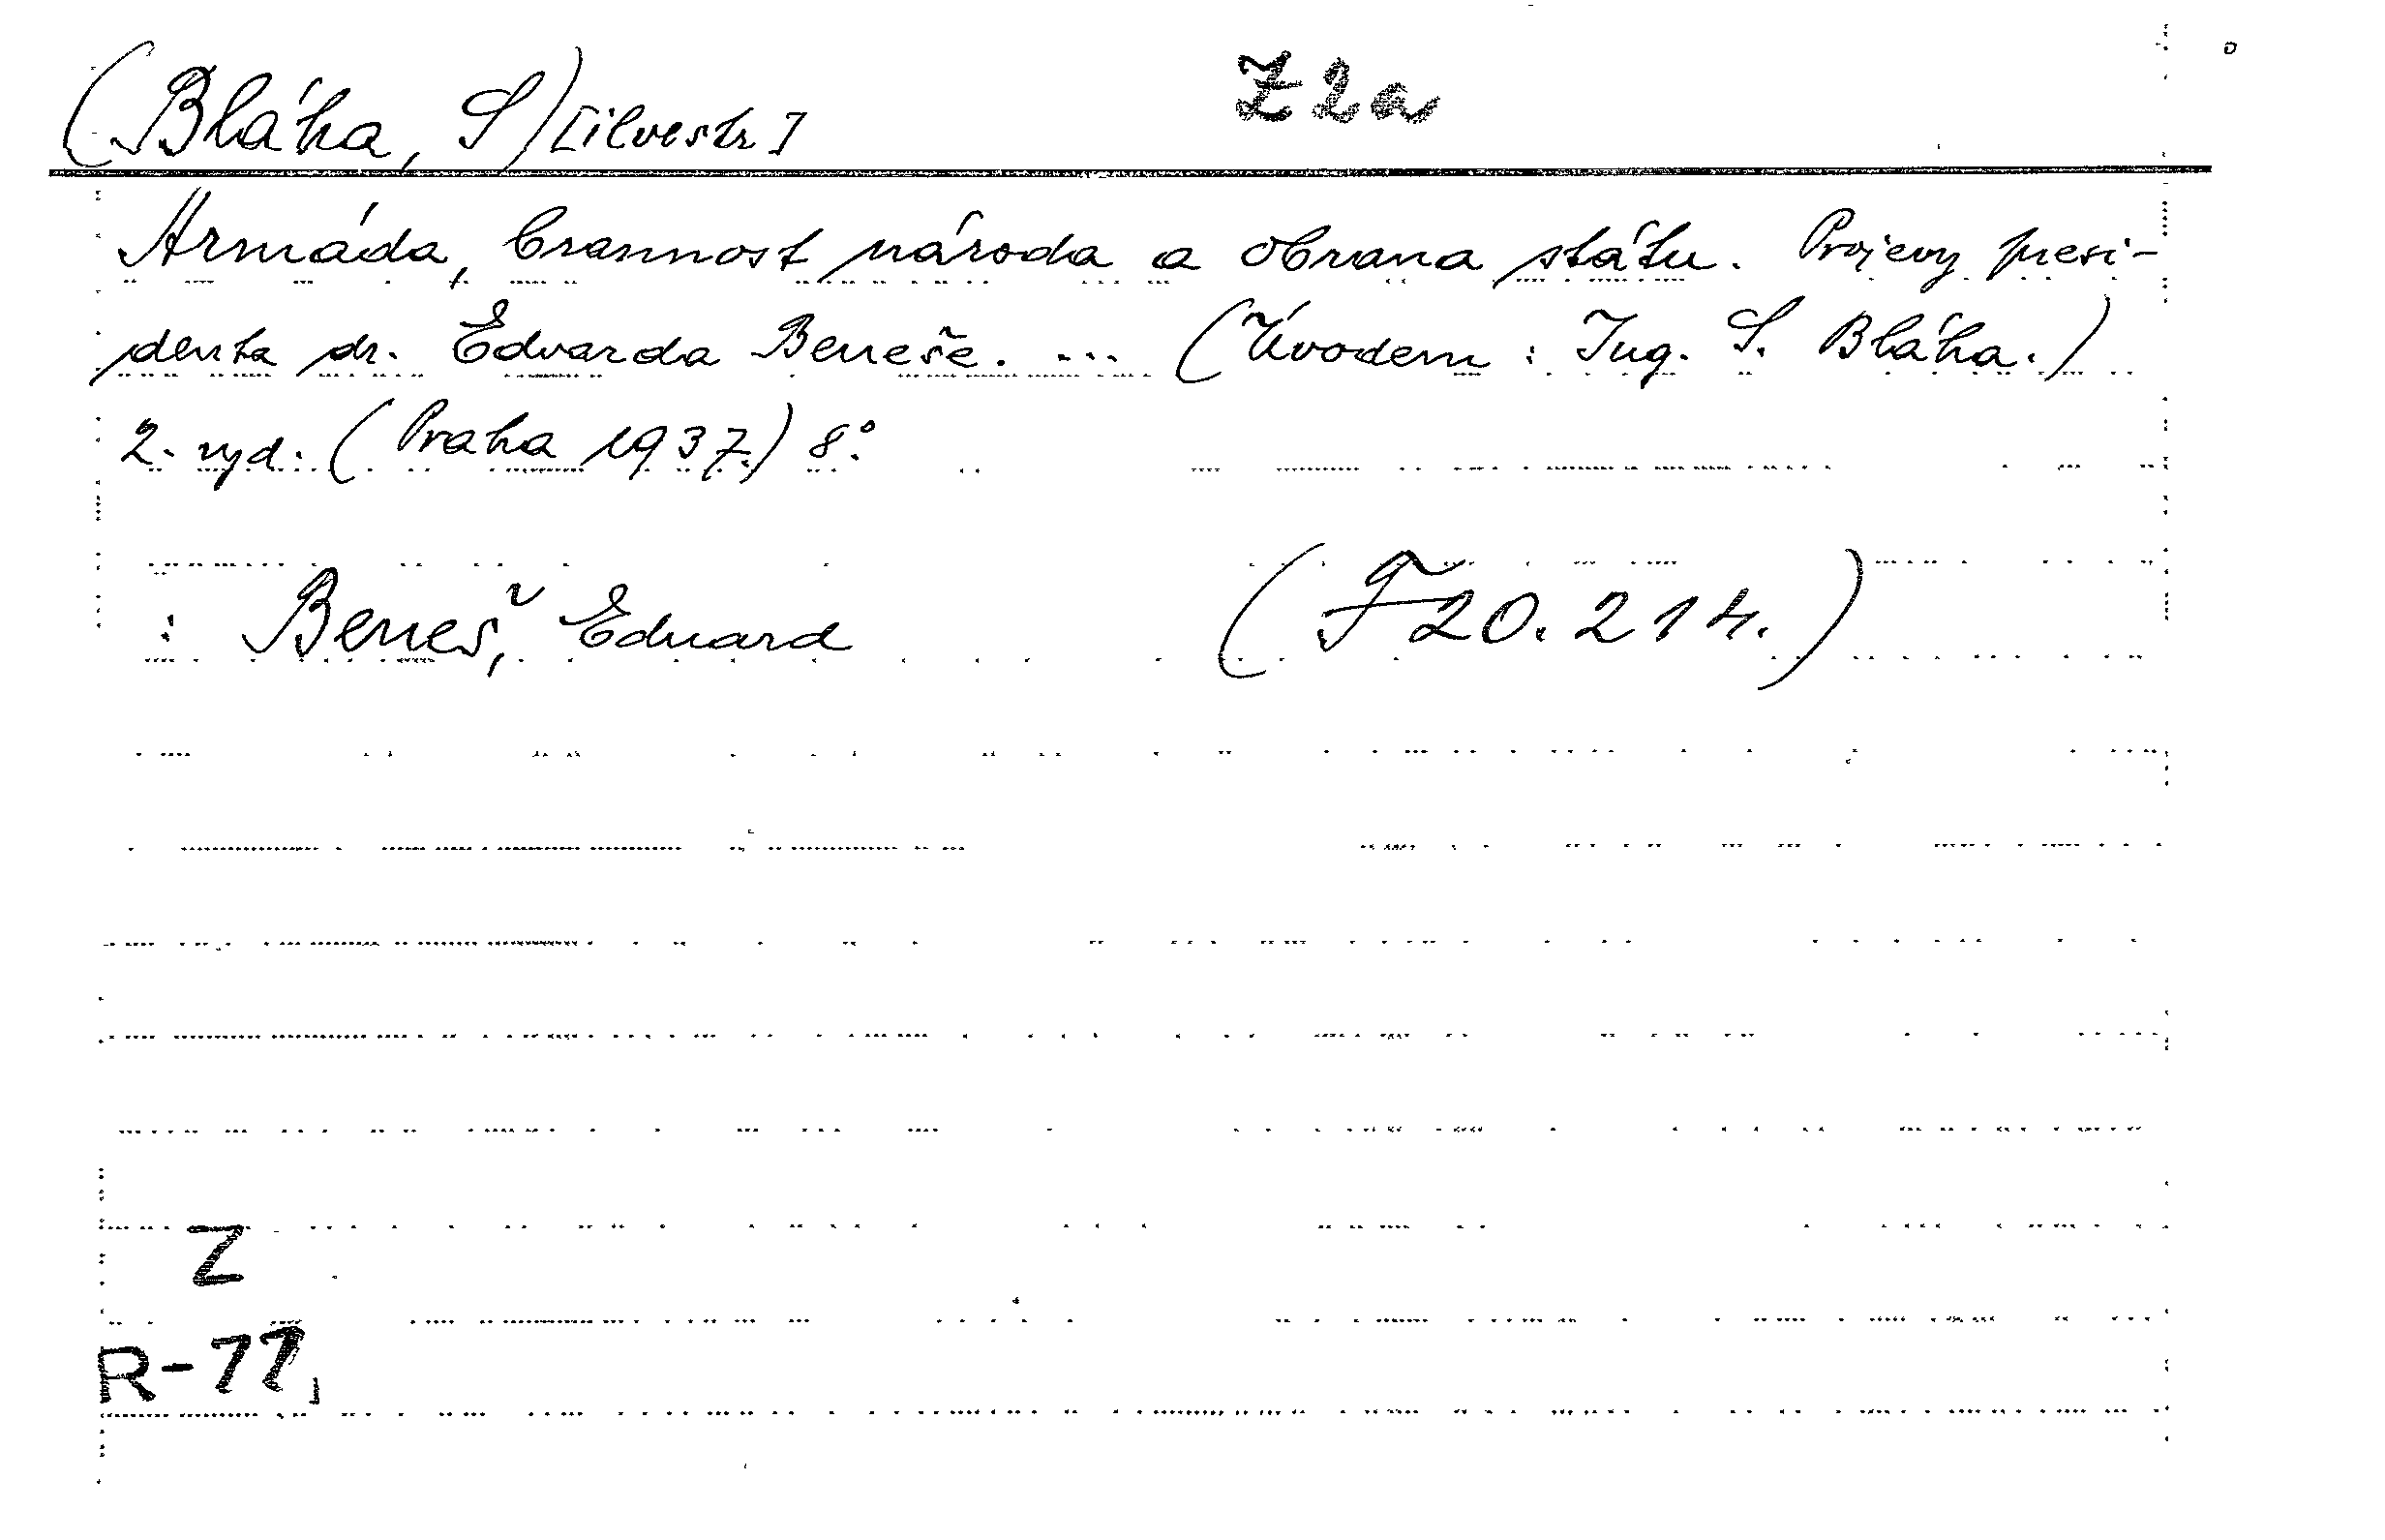 (Bláha, S)[ilvestr] Z2a
Armáda, brannost národa a obrana státu. Projevy presi-
denta dr. Edvarda Beneše. ... (Úvodem: Ing. S. Bláha.)
2. vyd. (Praha 1937.) 8°.
: Beneš, Eduard (F20.214.)
Z
R-77